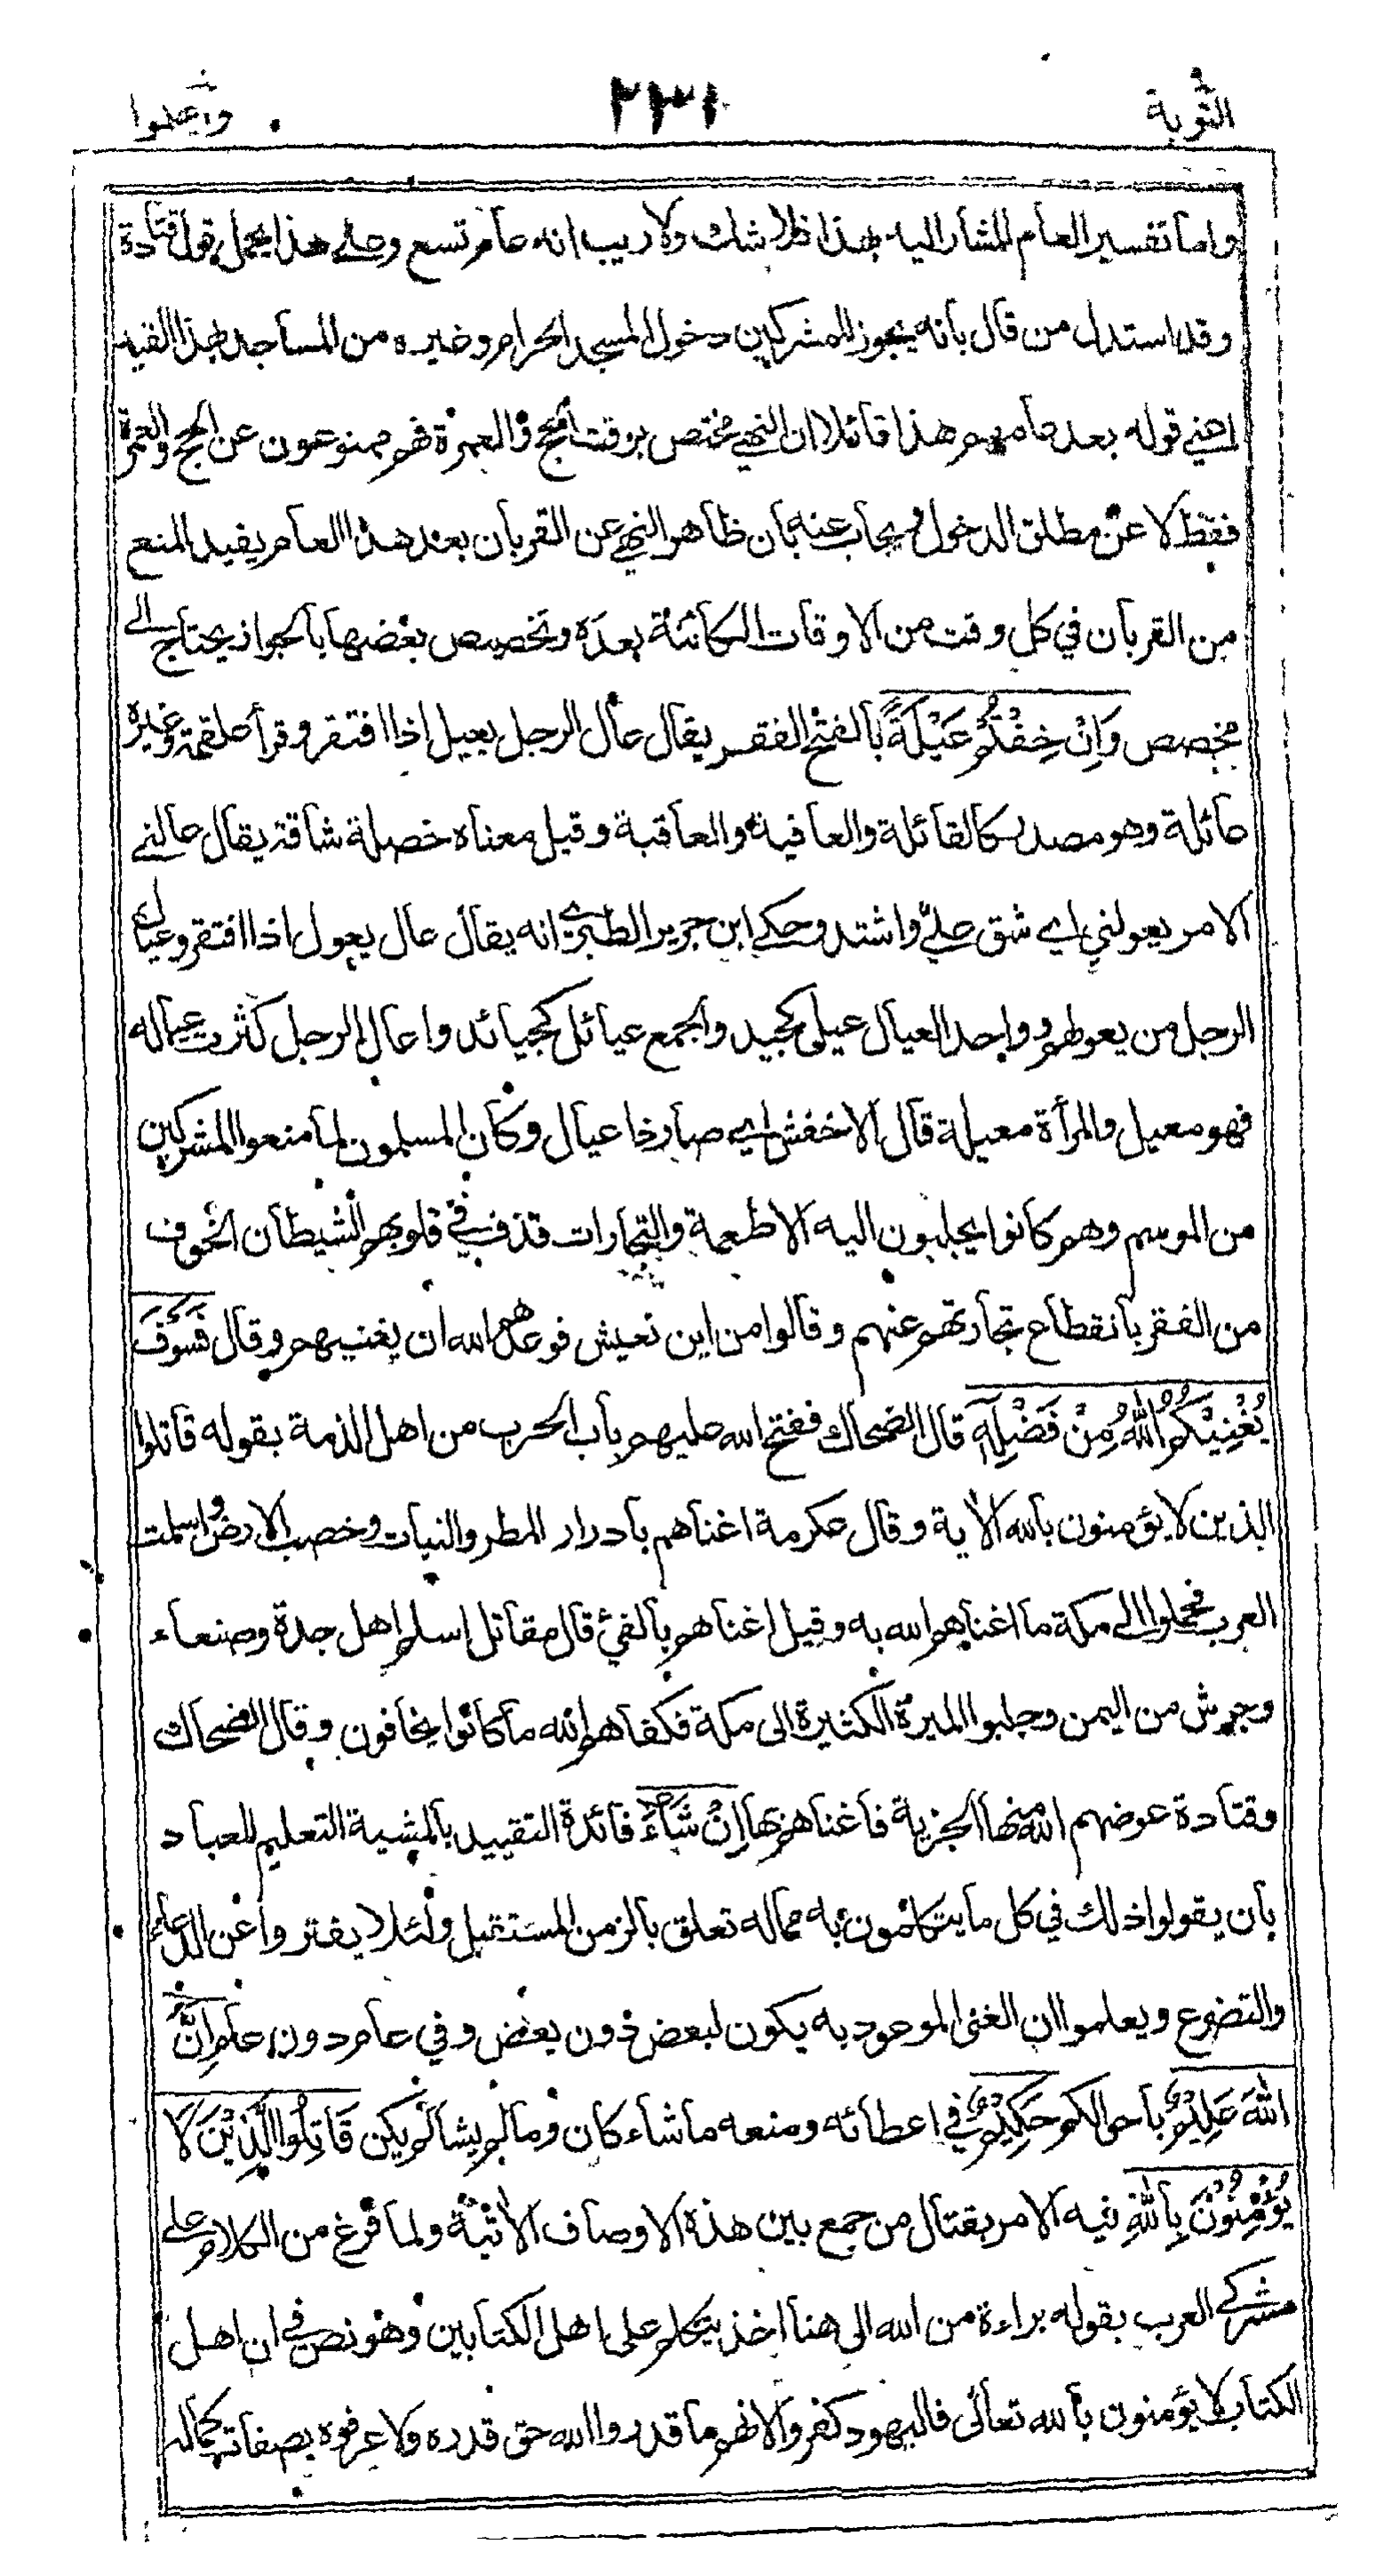 التوبة ٢٣١ واعلموا
واما تفسير العام المشار اليه بهذا فلا شك ولا ريب انه عام تسع وعلى هذا يحمل قول قتادة
وقد استدل من قال بانه يجوز للمشركين دخول المسجد الحرام وغيره من المساجد بهذا القيد
اعني قوله بعد عامهم هذا قائلا ان النهي مختص بوقت الحج والعمرة فهم ممنوعون عن الحج والعمرة
فقط لا عن مطلق الدخول ويجاب عنه بان ظاهر النهي عن القربان بعد هذا العام يفيد المنع
من القربان في كل وقت من الاوقات الكائنة بعده وتخصيص بعضها بالجواز يحتاج الى
مخصص وَاِنْ خِفْتُمْ عَيْلَةً بالفتح الفقر يقال عال الرجل يعيل اذا افتقر وقرأ علقمة وغيره
عائلة وهو مصدر كالقائلة والعافية والعاقبة وقيل معناه خصلة شاقة يقال عالني
الامر يعولني اي شق علي واشتد وحكى ابن جرير الطبري انه يقال عال يعول اذا افتقر وعيال
الرجل من يعولهم وواحد العيال عيل كجيد والجمع عيائل كجيائد واعال الرجل كثرت عياله
فهو معيل والمرأة معيلة قال الاخفش اي صار ذا عيال وكان المسلمون لما منعوا المشركين
من الموسم وهم كانوا يجلبون اليه الاطعمة والتجارات قذف في قلوبهم الشيطان الخوف
من الفقر بانقطاع تجارتهم عنهم وقالوا من اين نعيش فوعدهم الله ان يغنيهم وقال فَسَوْفَ
يُغْنِيْكُمُ اللّٰهُ مِنْ فَضْلِهٖ قال الضحاك ففتح الله عليهم باب الحرب من اهل الذمة بقوله قاتلوا
الذين لا يؤمنون بالله الآية وقال عكرمة اغناهم بادرار المطر والنبات وخصب الارض واسلمت
العرب فحملوا الى مكة ما اغناهم الله به وقيل اغناهم بالفيئ قال مقاتل اسلم اهل جدة وصنعاء
وجرش من اليمن وجلبوا الميرة الكثيرة الى مكة فكفاهم الله ما كانوا يخافون وقال الضحاك
وقتادة عوضهم الله منها الجزية فاغناهم بها اِنْ شَاءَ فائدة التقييد بالمشية التعليم للعباد
بان يقولوا ذلك في كل ما يتكلمون به مما له تعلق بالزمن المستقبل ولئلا يفتروا عن الدعاء
والتضرع ويعلموا ان الغنى الموعود به يكون لبعض دون بعض وفي عام دون عام اِنَّ
اللّٰهَ عَلِيْمٌ باحوالكم حَكِيْمٌ في اعطائه ومنعه ما شاء كان وما لم يشا لم يكن قَاتِلُوا الَّذِيْنَ لَا
يُؤْمِنُوْنَ بِاللّٰهِ فيه الامر بقتال من جمع بين هذه الاوصاف الآتية ولما فرغ من الكلام على
مشركي العرب بقوله براءة من الله الى هنا اخذ يتكلم على اهل الكتابين وهو نص في ان اهل
الكتاب لا يؤمنون بالله تعالى فاليهود كفروا لانهم ما قدروا الله حق قدره ولا عرفوه بصفاته كماله